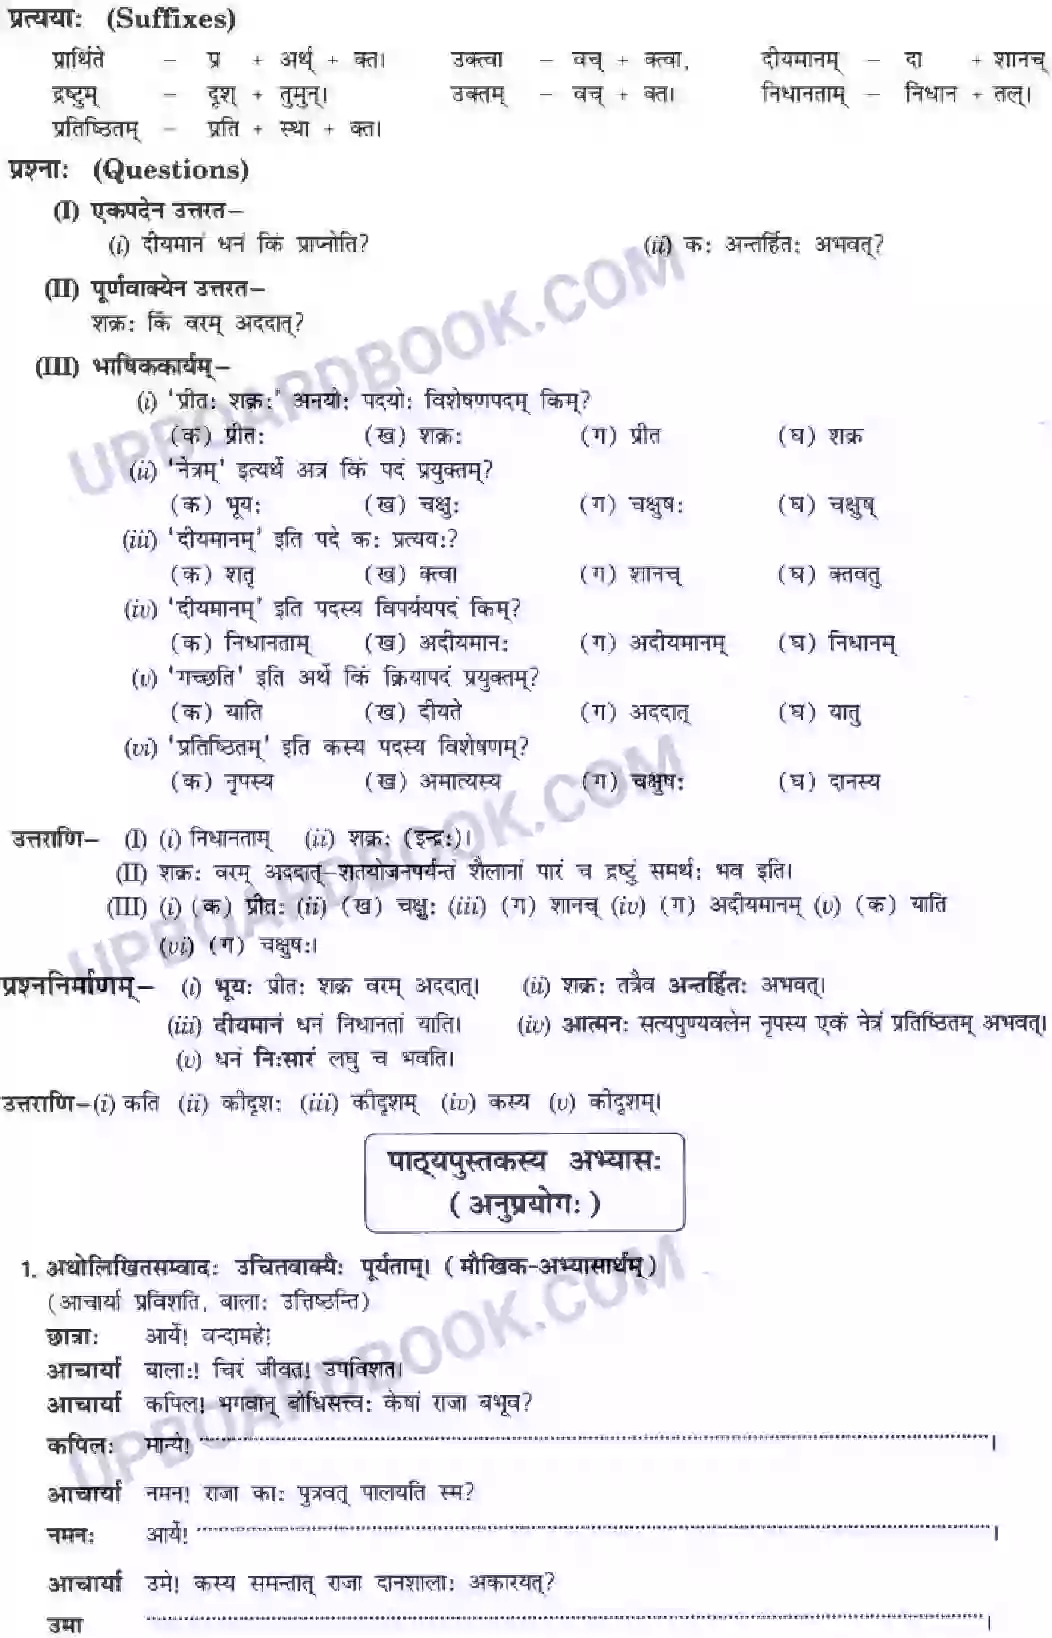 प्रत्यया: (Suffixes)
प्रार्थिते – प्र + अर्थ् + क्त। उक्त्वा – वच् + क्त्वा, दीयमानम् – दा + शानच्
द्रष्टुम् – दृश् + तुमुन्। उक्तम् – वच् + क्त। निधानताम् – निधान + तल्।
प्रतिष्ठितम् – प्रति + स्था + क्त।
प्रश्ना: (Questions)
(I) एकपदेन उत्तरत–
(i) दीयमानं धनं किं प्राप्नोति? (ii) क: अन्तर्हित: अभवत्?
(II) पूर्णवाक्येन उत्तरत–
शक्र: किं वरम् अददात्?
(III) भाषिककार्यम्–
(i) 'प्रीत: शक्र:' अनयो: पदयो: विशेषणपदम् किम्?
(क) प्रीत: (ख) शक्र: (ग) प्रीत (घ) शक्र
(ii) 'नेत्रम्' इत्यर्थे अत्र किं पदं प्रयुक्तम्?
(क) भूय: (ख) चक्षु: (ग) चक्षुष: (घ) चक्षुष्
(iii) 'दीयमानम्' इति पदे क: प्रत्यय:?
(क) शतृ (ख) क्त्वा (ग) शानच् (घ) क्तवतु
(iv) 'दीयमानम्' इति पदस्य विपर्ययपदं किम्?
(क) निधानताम् (ख) अदीयमान: (ग) अदीयमानम् (घ) निधानम्
(v) 'गच्छति' इति अर्थे किं क्रियापदं प्रयुक्तम्?
(क) याति (ख) दीयते (ग) अददात् (घ) यातु
(vi) 'प्रतिष्ठितम्' इति कस्य पदस्य विशेषणम्?
(क) नृपस्य (ख) अमात्यस्य (ग) चक्षुष: (घ) दानस्य
उत्तराणि– (I) (i) निधानताम् (ii) शक्र: (इन्द्र:)।
(II) शक्र: वरम् अददात्–शतयोजनपर्यन्तं शैलानां पारं च द्रष्टुं समर्थ: भव इति।
(III) (i) (क) प्रीत: (ii) (ख) चक्षु: (iii) (ग) शानच् (iv) (ग) अदीयमानम् (v) (क) याति
(vi) (ग) चक्षुष:।
प्रश्ननिर्माणम्– (i) भूय: प्रीत: शक्र वरम् अददात्। (ii) शक्र: तत्रैव अन्तर्हित: अभवत्।
(iii) दीयमानं धनं निधानतां याति। (iv) आत्मन: सत्यपुण्यवलेन नृपस्य एकं नेत्रं प्रतिष्ठितम् अभवत्।
(v) धनं नि:सारं लघु च भवति।
उत्तराणि–(i) कति (ii) कीदृश: (iii) कीदृशम् (iv) कस्य (v) कीदृशम्।
पाठ्यपुस्तकस्य अभ्यास:
(अनुप्रयोग:)
1. अधोलिखितसम्वाद: उचितवाक्यै: पूर्यताम्। (मौखिक-अभ्यासार्थम्)
(आचार्या प्रविशति, बाला: उत्तिष्ठन्ति)
छात्रा: आर्ये! वन्दामहे!
आचार्या बाला:! चिरं जीवत! उपविशत।
आचार्या कपिल! भगवान् बोधिसत्त्व: केषां राजा बभूव?
कपिल: मान्ये! ........................।
आचार्या नमन! राजा का: पुत्रवत् पालयति स्म?
नमन: आर्ये! ........................।
आचार्या उमे! कस्य समन्तात् राजा दानशाला: अकारयत्?
उमा ........................।
UPBOARDBOOK.COM
UPBOARDBOOK.COM
UPBOARDBOOK.COM